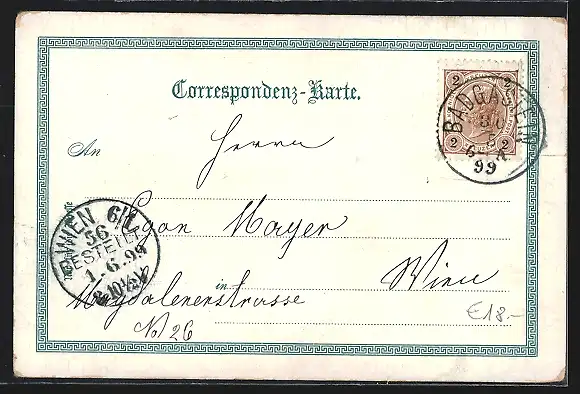 Correspondenz-Karte.
2 2
2 2
BADGASTEIN
99
Herrn
An
Egon Mayer
WIEN 6/1
56
BESTELLT
1.6.99
in Wien
Magdalenenstrasse
No 26
€18.-